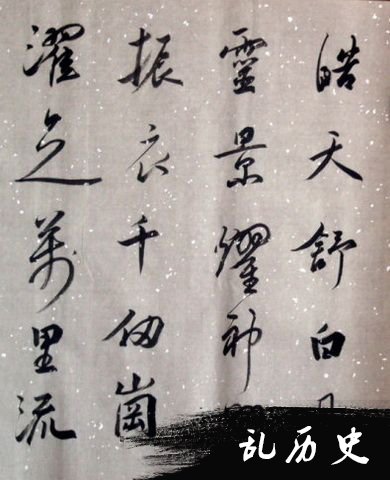 皓天舒白
靈景耀神
振衣千仞崗
濯足萬里流
乱历史